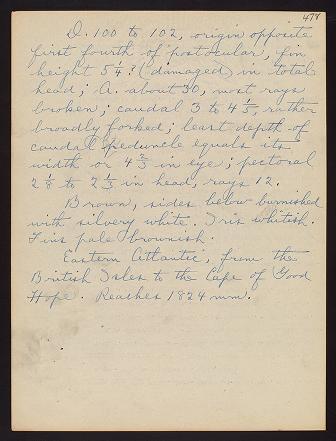 478
D. 100 to 102, origin opposite
first fourth of postocular, fin
height 5 1/4? (damaged) in total
head; A. about 30, most rays
broken; caudal 3 to 4 1/5, rather
broadly forked; least depth of
caudal peduncle equals its
width or 4 2/3 in eye; pectoral
2 1/8 to 2 1/3 in head, rays 12.
Brown, sides below burnished
with silvery white. Iris whitish.
Fins pale brownish.
Eastern Atlantic, from the
British Isles to the Cape of Good
Hope. Reaches 1824 mm.